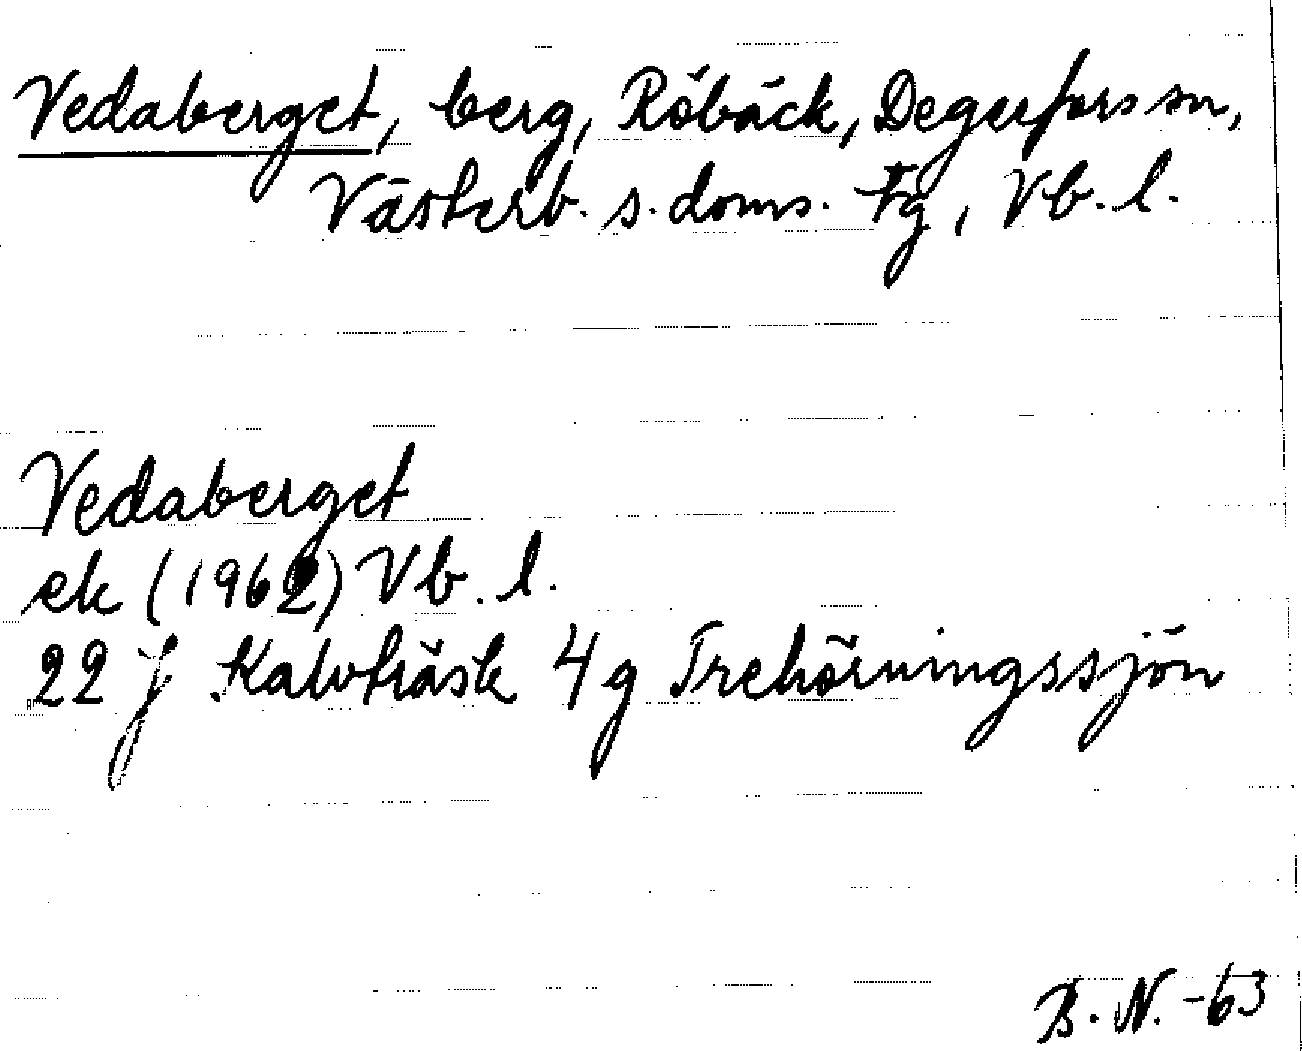 Vedaberget, berg, Röbäck, Degerfors sn,
Västerb. s. doms. tg, Vb. l.
Vedaberget
ek (1962) Vb. l.
22 J Kalvträsk 4 g Trehörningssjön
B. N. -63